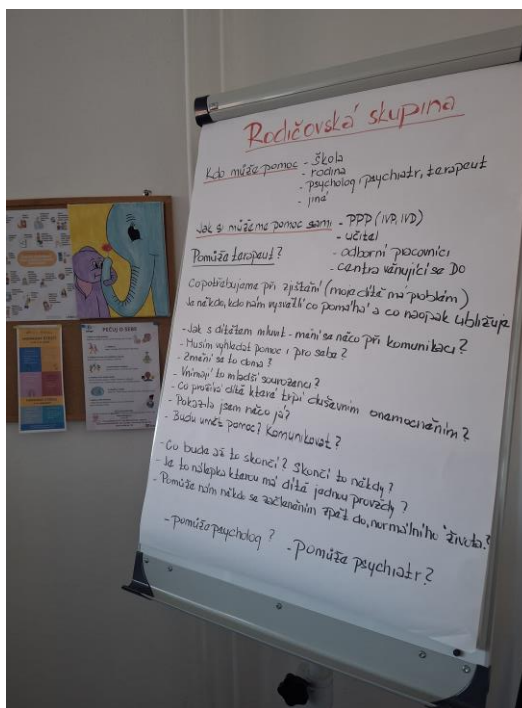 Rodičovská skupina
Kdo může pomoc - škola
- rodina
- psycholog, psychiatr, terapeut
- jiné
Jak si můžeme pomoc sami - PPP (IVP, IVD)
- učitel
- odborní pracovníci
- centra věnující se DO
Pomůže terapeut?
Co potřebujeme při zjištění (moje dítě má problém)
Je někdo, kdo nám vysvětlí co pomáhá a co naopak ubližuje
- Jak s dítětem mluvit - mění se něco při komunikaci?
- Musím vyhledat pomoc i pro sebe?
- Změní se to doma?
- Vnímají to mladší sourozenci?
- Co prožívá dítě které trpí duševním onemocněním?
- Pokazila jsem něco já?
- Budu umět pomoc? Komunikovat?
- Co bude až to skončí? Skončí to někdy?
- Je to nálepka kterou má dítě jednou provždy?
- Pomůže nám někdo se začleněním zpět do „normálního" života?
- pomůže psycholog? - pomůže psychiatr?
PEČUJ O SEBE